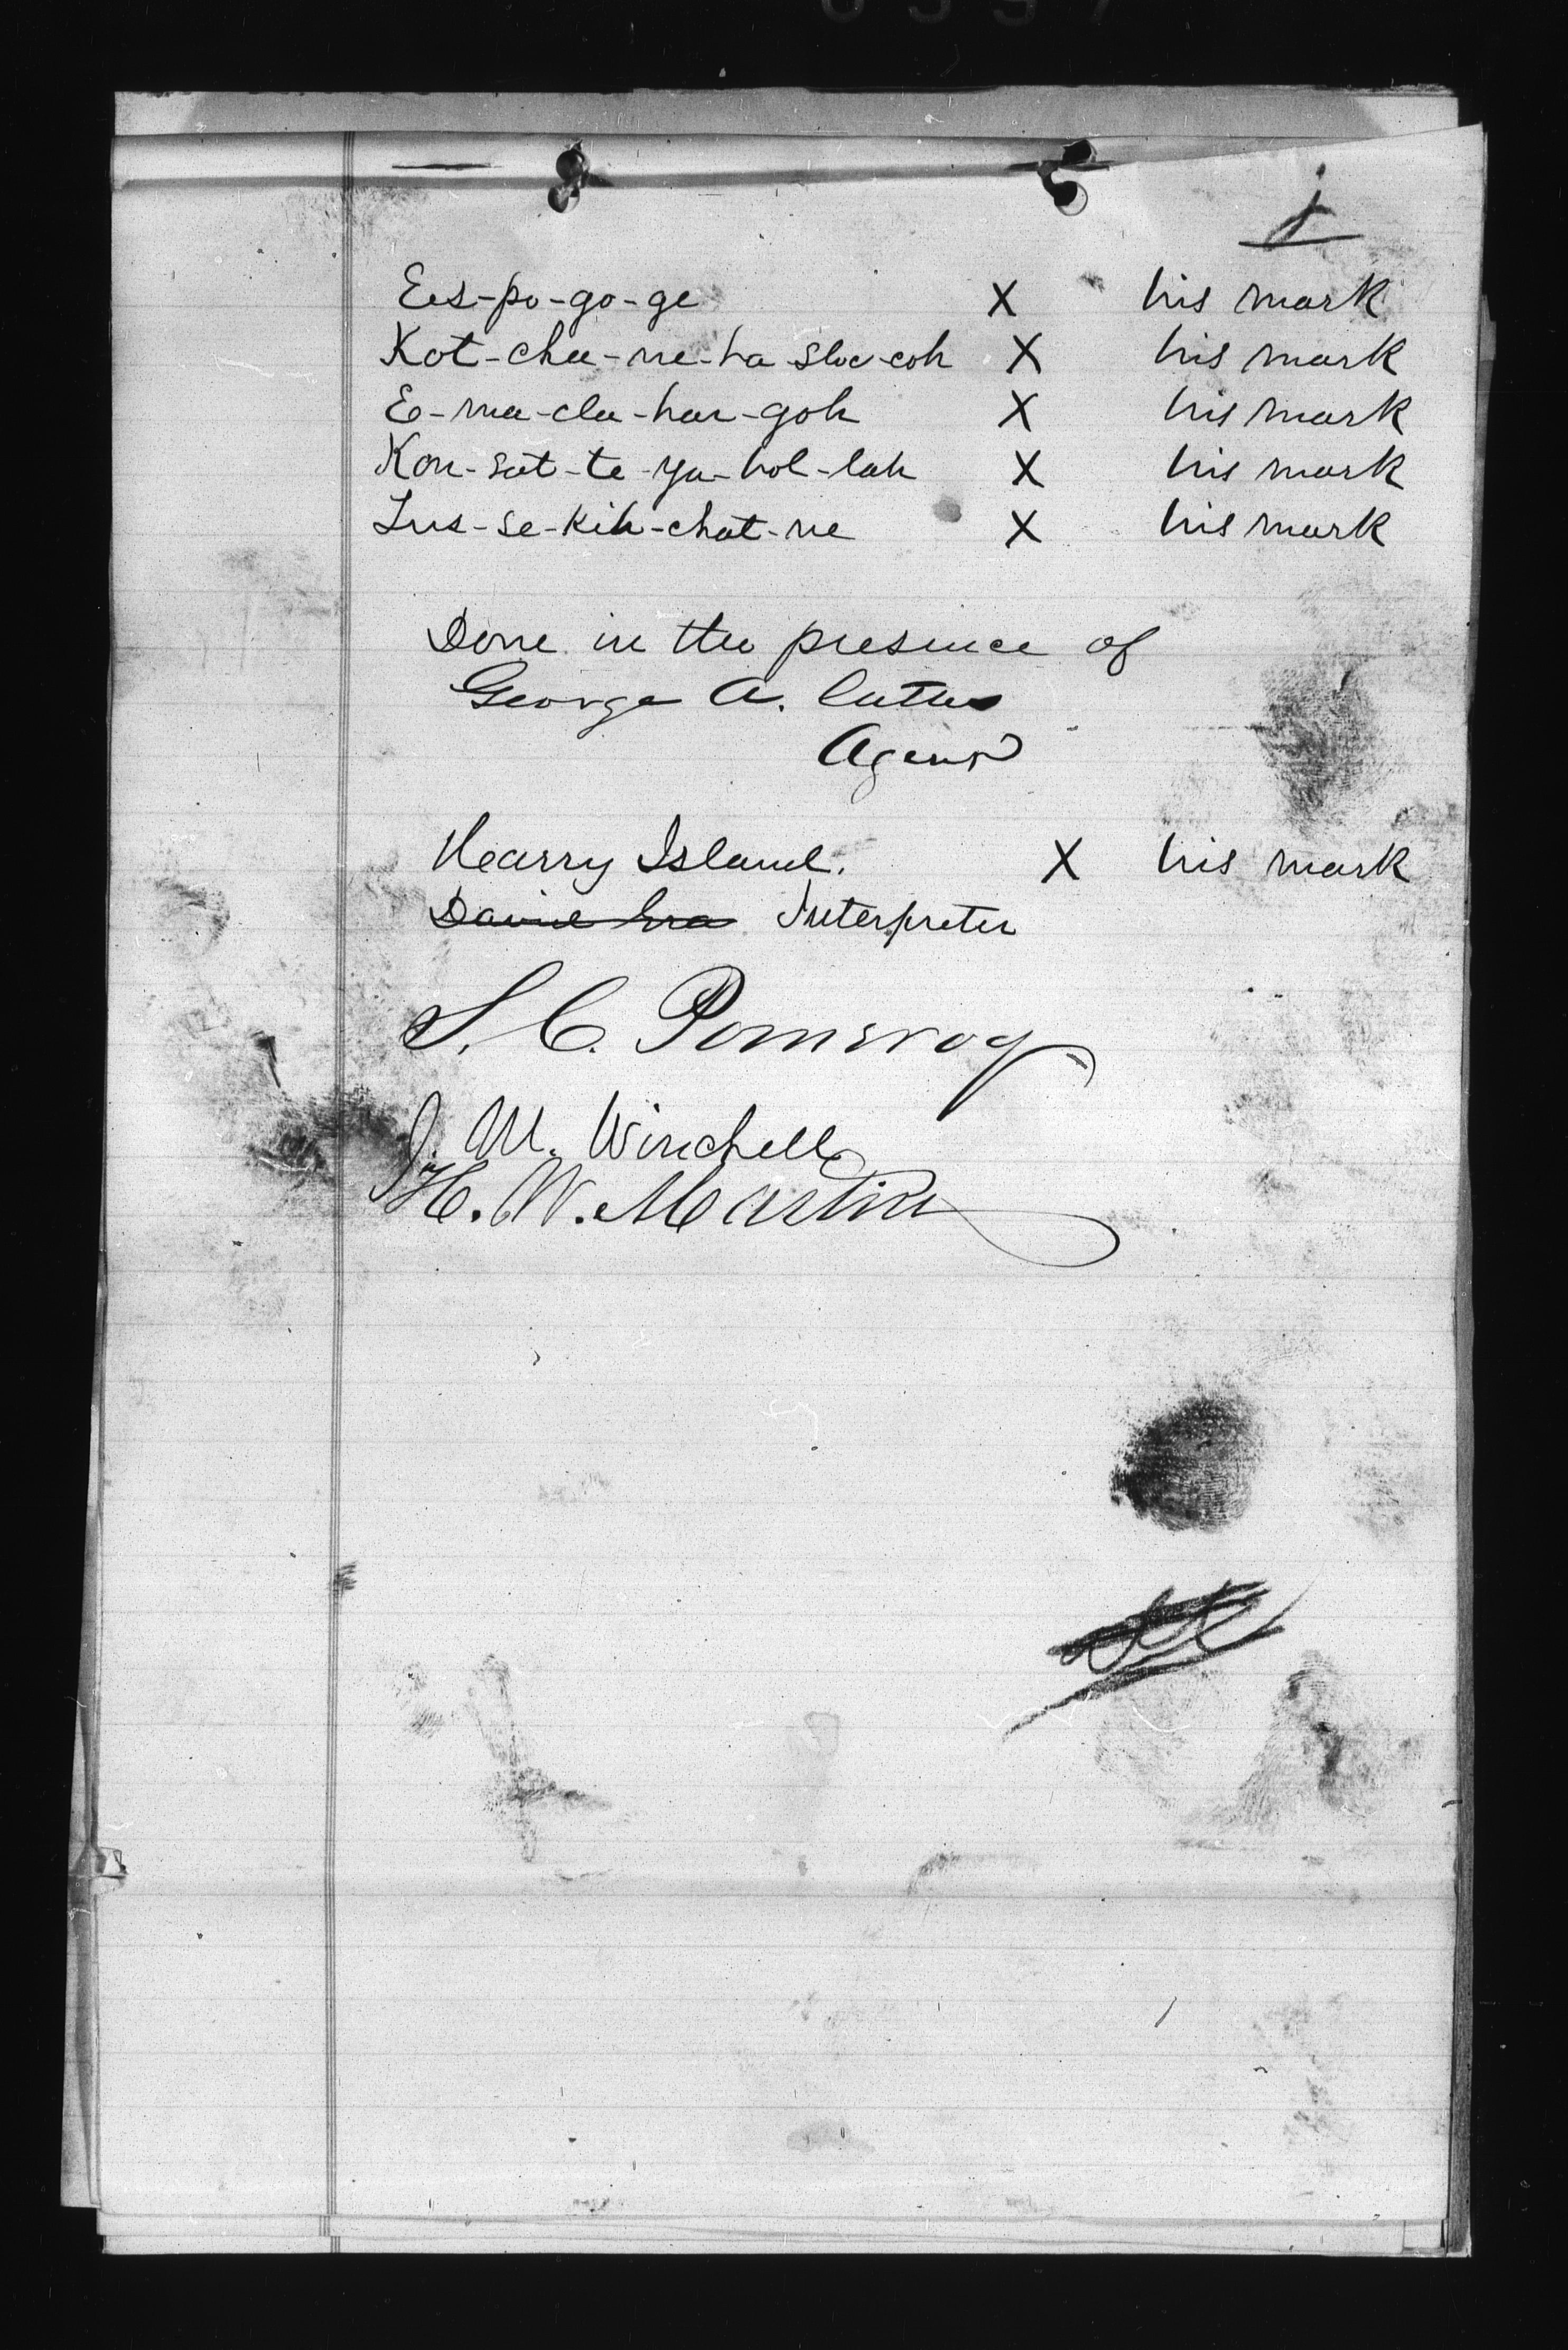 j
Ees-po-go-ge X his mark
Kot-cha-ne-ha-sloc-coh X his mark
E-ma-cla-har-goh X his mark
Kon-sat-te-ya-hol-lah X his mark
Lus-se-kih-chat-ne X his mark
Done in the presence of
George A. Cutler
Agent
Hearry Island. X his mark
Interpreter
S. C. Pomeroy
J. M. Winchell
H. W. Martin